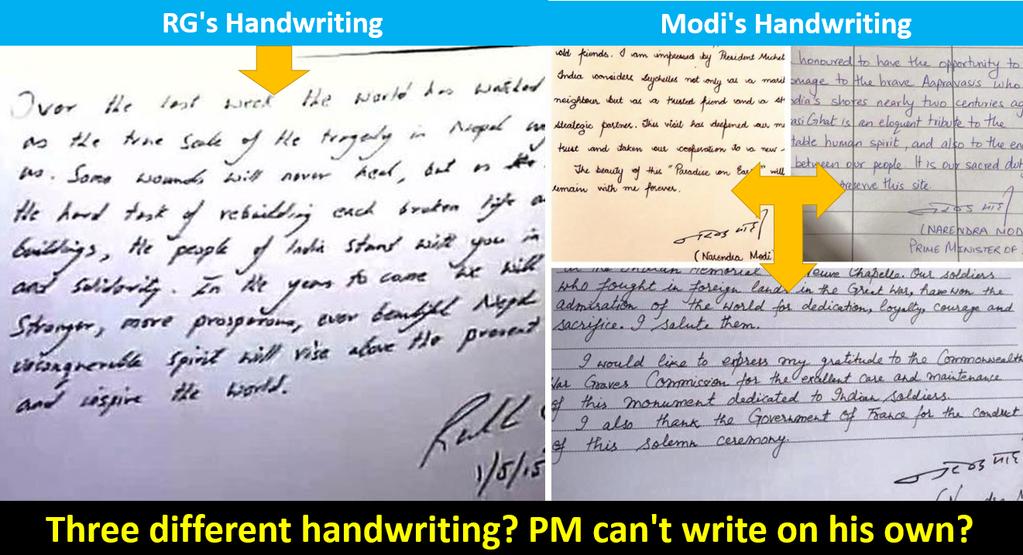 RG's Handwriting
Over the last week the world has watched
as the true scale of the tragedy in Nepal
us. Some wounds will never heal, but as the
the hard task of rebuilding each broken life a
buildings, the people of India stand with you in
and solidarity. In the years to come we will
stronger, more prosperous, ever beautiful Nepal
unconquerable spirit will rise above the present
and inspire the world.
1/5/15
Modi's Handwriting
old friends. I am impressed by President Michel
India considers Seychelles not only as a
neighbour but as a trusted friend and a st
strategic partner. This visit has deepened our
trust and taken our cooperation to a new
The beauty of this "Paradise on Earth" will
remain with me forever.
नरेन्द्र मोदी
(Narendra Modi
honoured to have the opportunity to
omage to the brave Aapravasis who
ndia's shores nearly two centuries ag
asi Ghat is an eloquent tribute to the
table human spirit, and also to the en
between our people. It is our sacred dut
preserve this site.
नरेन्द्र मोदी
(NARENDRA MOD
PRIME MINISTER OF
the Indian Memorial Neuve Chapelle. Our soldiers
who fought in foreign lands in the Great War, have won the
admiration of the world for dedication, loyalty, courage and
sacrifice. I salute them.
I would like to express my gratitude to the Commonwealth
War Graves Commission for the excellent care and maintenance
of this monument dedicated to Indian Soldiers.
I also thank the Government of France for the conduct
of this solemn ceremony.
नरेन्द्र मोदी
Three different handwriting? PM can't write on his own?